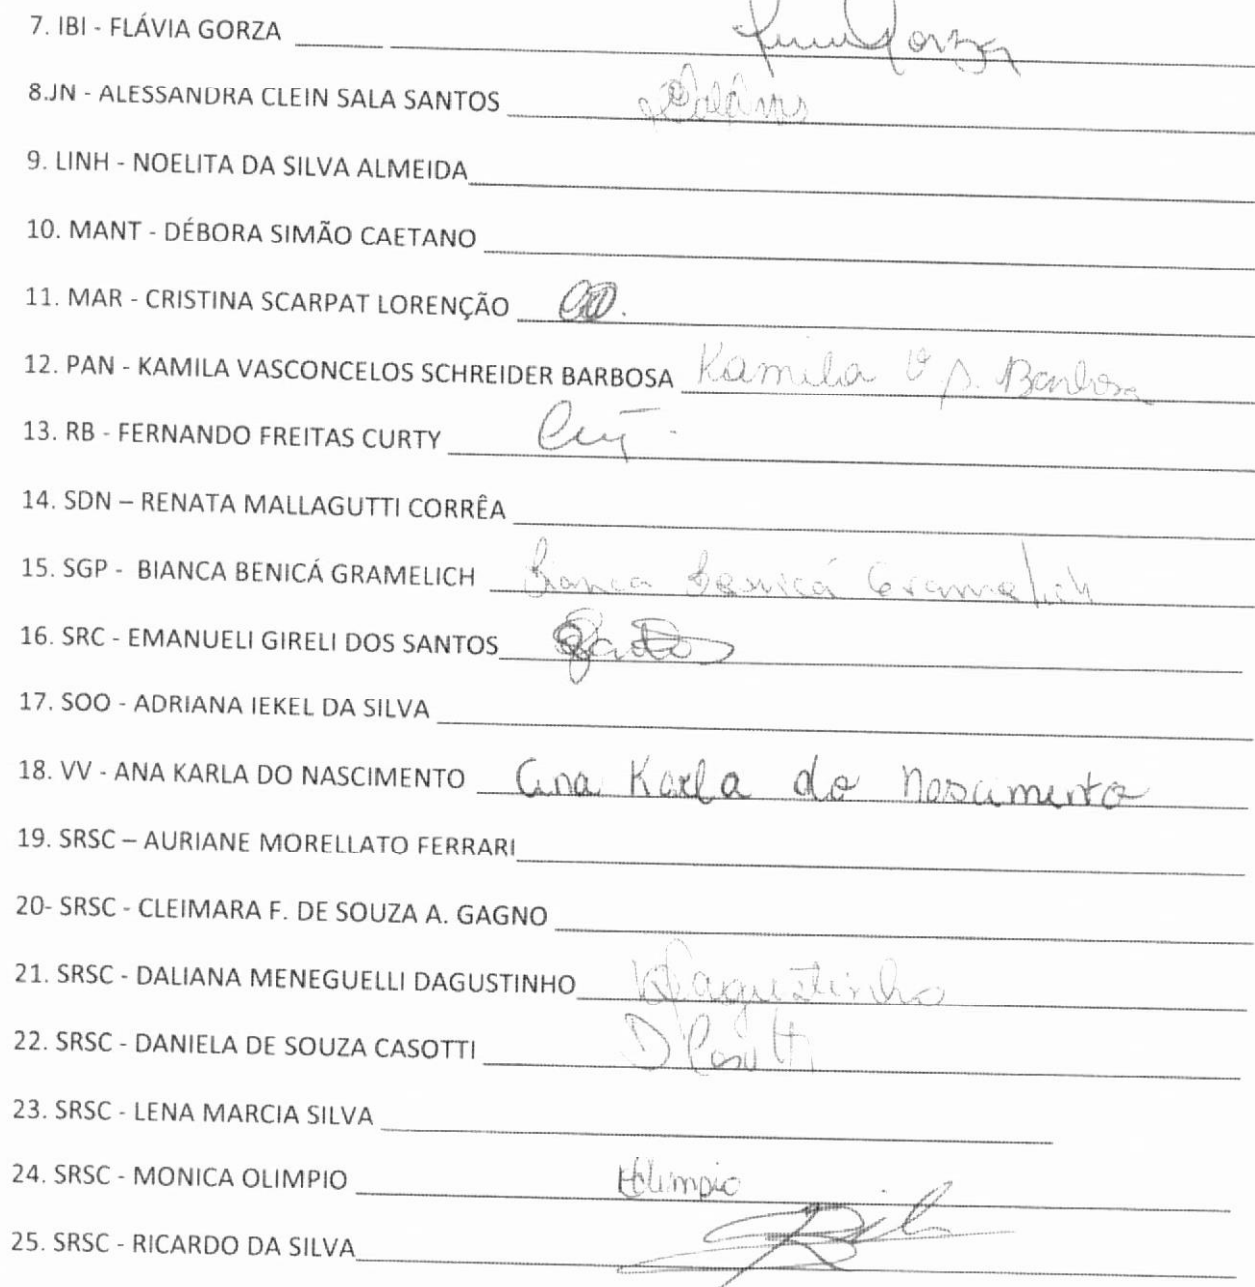 7. IBI - FLÁVIA GORZA Gorza
8.JN - ALESSANDRA CLEIN SALA SANTOS
9. LINH - NOELITA DA SILVA ALMEIDA
10. MANT - DÉBORA SIMÃO CAETANO
11. MAR - CRISTINA SCARPAT LORENÇÃO
12. PAN - KAMILA VASCONCELOS SCHREIDER BARBOSA Kamila V S. Barbosa
13. RB - FERNANDO FREITAS CURTY
14. SDN – RENATA MALLAGUTTI CORRÊA
15. SGP - BIANCA BENICÁ GRAMELICH Bianca Benicá Gramelich
16. SRC - EMANUELI GIRELI DOS SANTOS
17. SOO - ADRIANA IEKEL DA SILVA
18. VV - ANA KARLA DO NASCIMENTO Ana Karla do Nascimento
19. SRSC – AURIANE MORELLATO FERRARI
20- SRSC - CLEIMARA F. DE SOUZA A. GAGNO
21. SRSC - DALIANA MENEGUELLI DAGUSTINHO Dagustinho
22. SRSC - DANIELA DE SOUZA CASOTTI D Casotti
23. SRSC - LENA MARCIA SILVA
24. SRSC - MONICA OLIMPIO Olimpio
25. SRSC - RICARDO DA SILVA